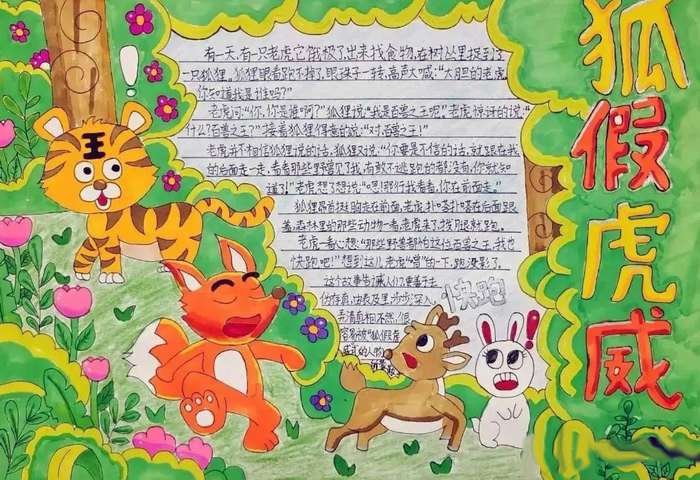 狐假虎威
有一天,有一只老虎它饿极了出来找食物,在树丛里捉到了
一只狐狸,狐狸眼看跑不掉了,眼珠子一转,高声大喊:“大胆的老虎,
你知道我是谁吗?”
老虎问:“你,你是谁啊?”狐狸说:“我是百兽之王呢。”老虎惊讶的说:“
什么?百兽之王?”接着狐狸得意的说:“对!百兽之王!”
老虎并不相信狐狸说的话,狐狸又说:“你要是不信的话,就跟在我
的后面走一走,看看那些野兽见了我,有敢不逃跑的都没有,你就知
道了!”老虎想了想说:“嗯!那行我看看,你在前面走。”
狐狸昂首挺胸走在前面,老虎在后面跟
着,森林里的那些动物一看,老虎来了,拔腿就跑。
老虎一看心想:“那些野兽都怕这位百兽之王,我也
快跑吧!”想到这儿,老虎“嗖”的一下,跑没影了。
这个故事告诫人们要善于去
伪存真,快要及里,步步深入,
弄清真相,不然,很
容易被“狐假虎
威”式的人物
快跑
王